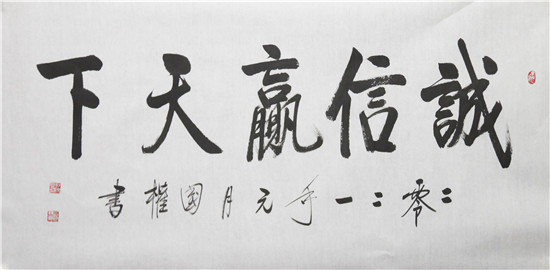 誠信贏天下
二零二一年元月國權書